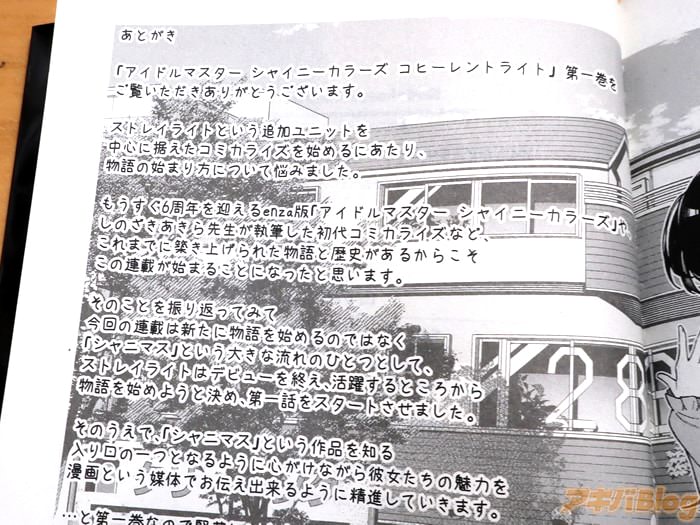 あとがき
「アイドルマスター シャイニーカラーズ コヒーレントライト」第一巻を
ご覧いただきありがとうございます。
ストレイライトという追加ユニットを
中心に据えたコミカライズを始めるにあたり、
物語の始まり方について悩みました。
もうすぐ6周年を迎えるenza版「アイドルマスター シャイニーカラーズ」や、
しのざきあきら先生が執筆した初代コミカライズなど、
これまでに築き上げられた物語と歴史があるからこそ
この連載が始まることになったと思います。
そのことを振り返ってみて
今回の連載は新たに物語を始めるのではなく
「シャニマス」という大きな流れのひとつとして、
ストレイライトはデビューを終え、活躍するところから
物語を始めようと決め、第一話をスタートさせました。
そのうえで、「シャニマス」という作品を知る
入り口の一つとなるように心がけながら彼女たちの魅力を
漫画という媒体でお伝え出来るように精進していきます。
…と第一巻なので
283
アキバBlog